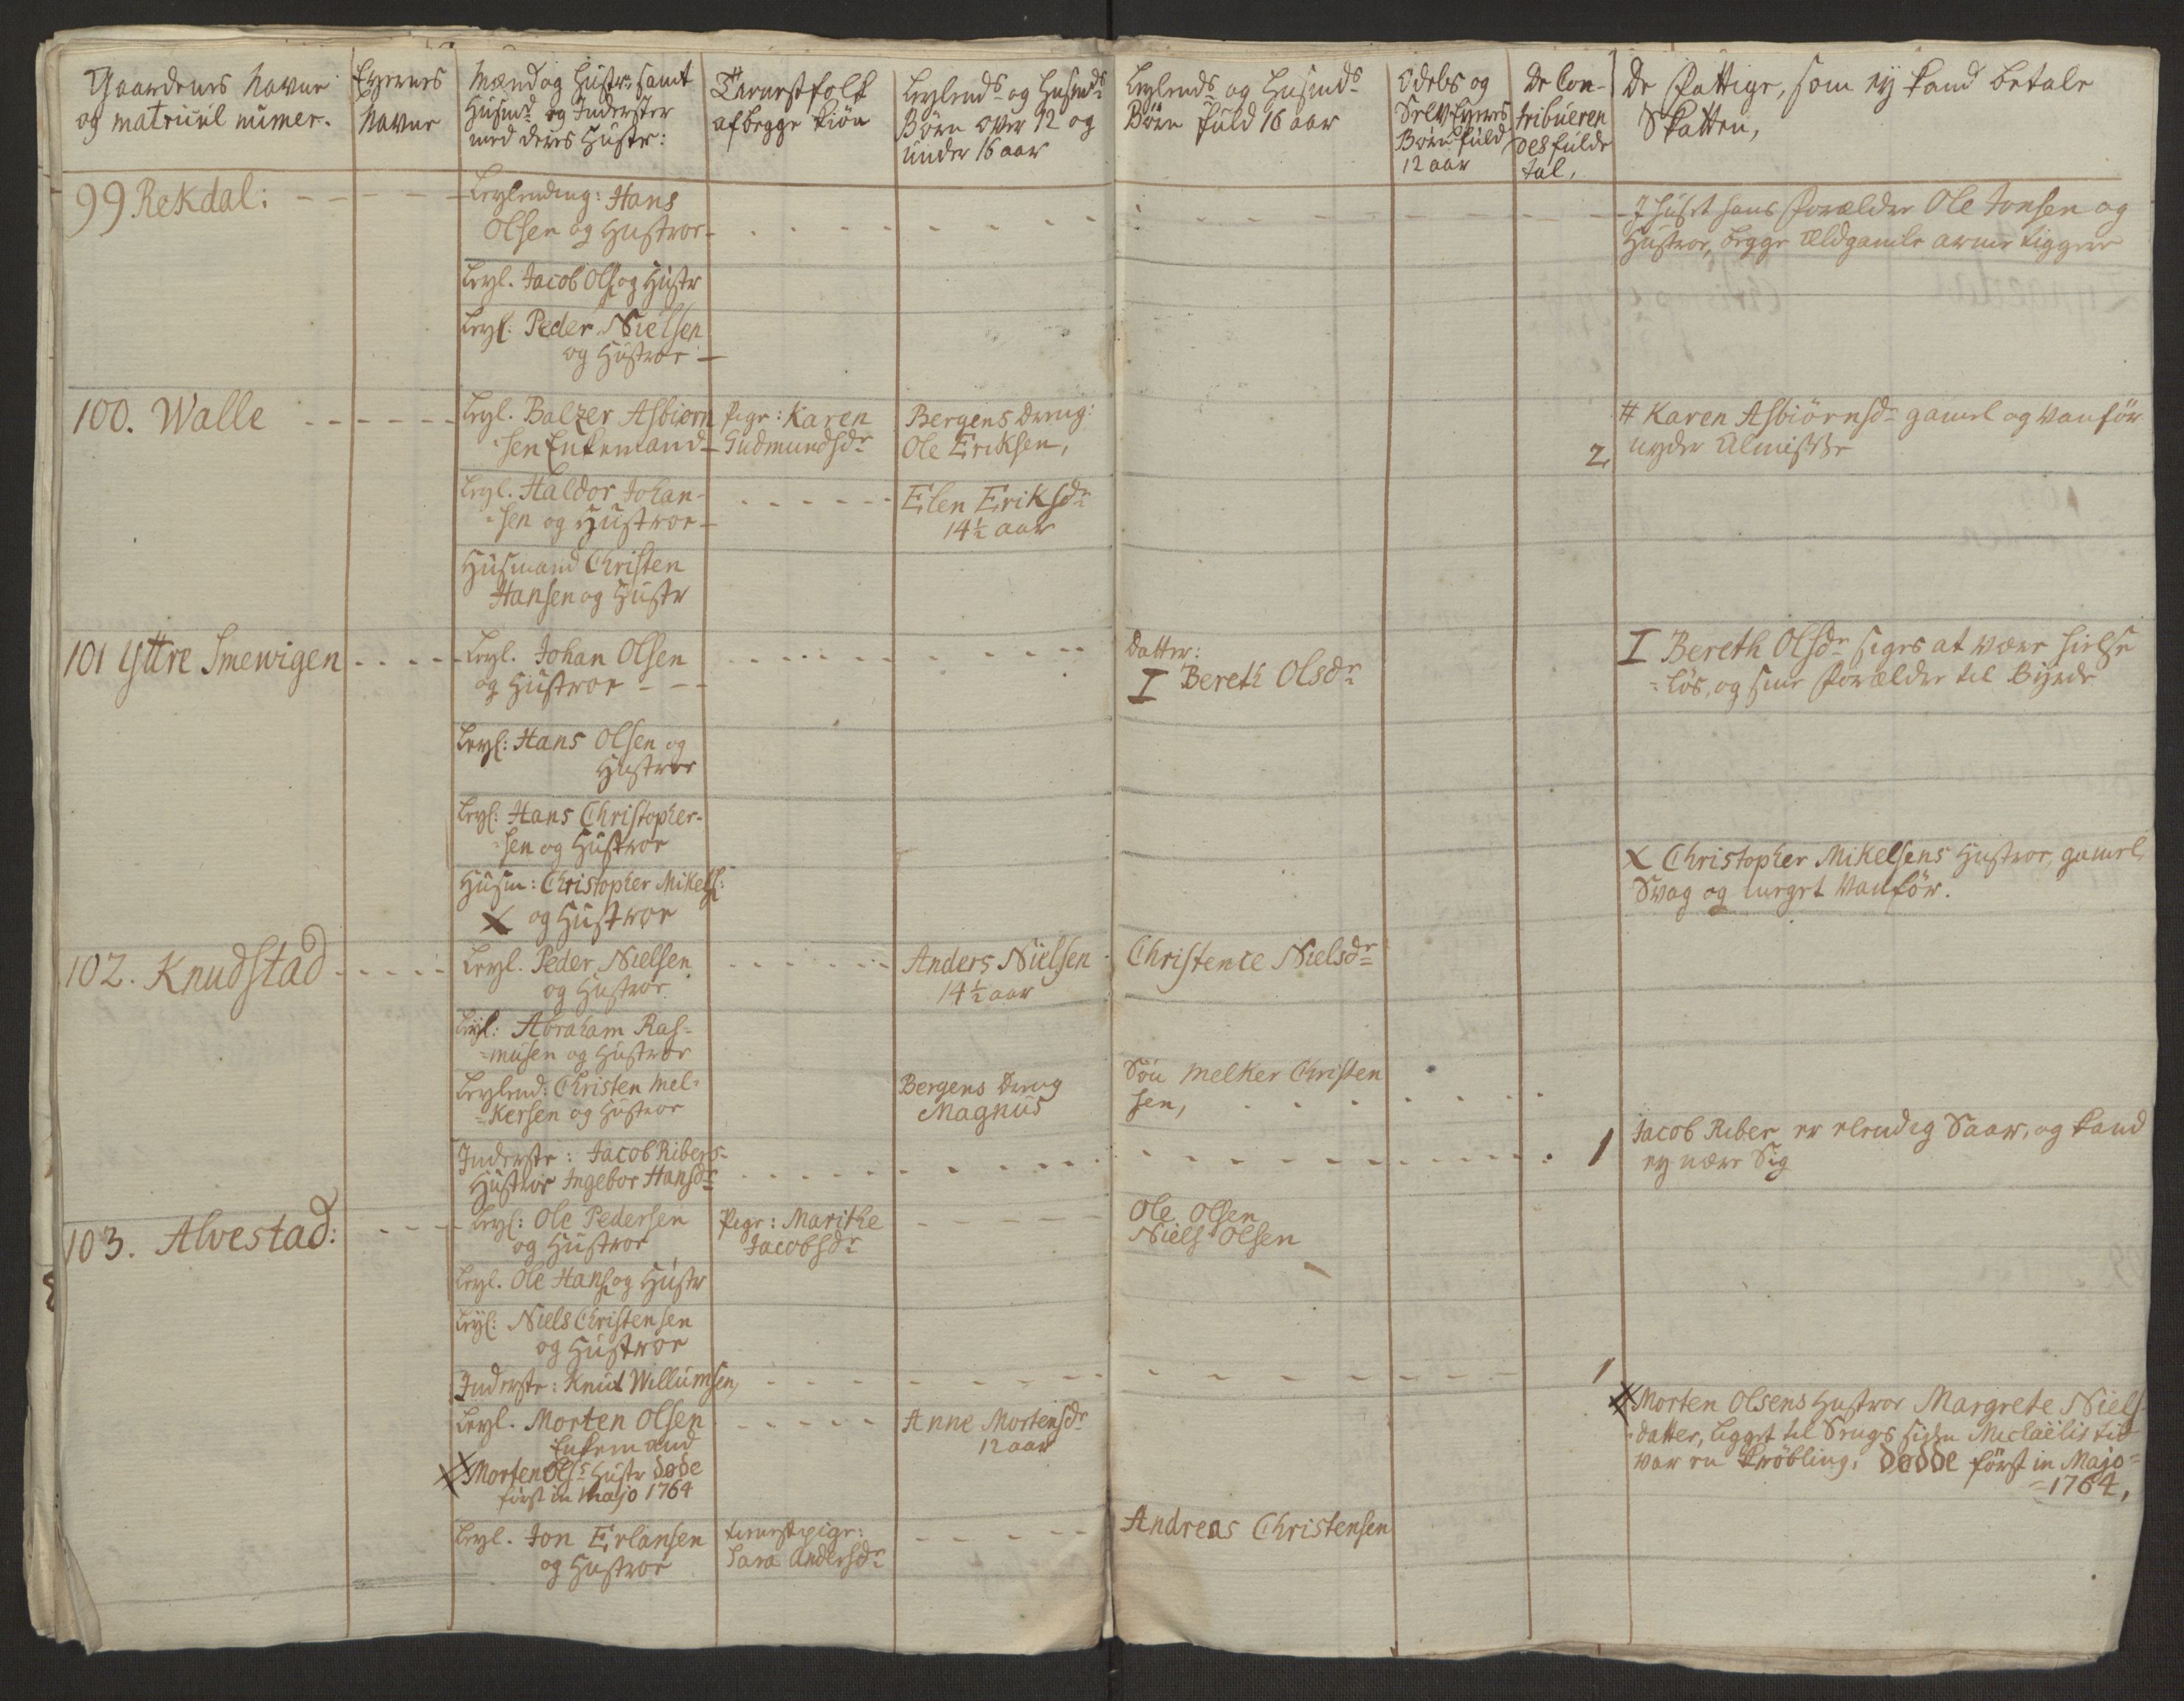 Gaardenes Navne
og matricul numer.
Eyernes
Navne
Mænd og Hustr: samt
Husmd og Inderster
med deres Hustr:
Tienestfolk
af begge Kiøn
Leylends og Husmds
Børn over 12 og
under 16 aar
Leylends og Husmds
Børn fuld 16 aar
Odels og
Selv Eyeres
Børn fuld
12 aar
De Con-
tribueren
des fulde
tal,
De Fattige, som ey kand betale
Skatten,
99 Rekdal:
Leylending: Hans
Olsen og Hustroe
I huset hans Forældre Ole Jonsen og
Hustroe, begge Eldgamle arme tiggere
Leyl. Jacob Ols: og Hustr
Leyl: Peder Nielsen
og Hustroe
100. Walle
Leyl. Balzer Asbiørn
sen Enkemand
Pige: Karen
Gudmundsdr
Bergens dreng:
Ole Eriksen,
2,
# Karen Asbiørnsdr gamel og vanför
nyder Almisse
Leyl. Haldor Johan-
=sen og Hustroe
Elen Eriksdr
14½ aar
Husmand Christen
Hansen og Hustr
101 Yttre Smewigen
Leyl. Johan Olsen
og Hustroe
Datter:
I Bereth Olsdr
I Bereth Olsdr siges at være hielpe
=løs, og sine Forældre til Byrde
Leyl: Hans Olsen og
Hustroe
Leyl: Hans Christopher-
=sen og Hustroe
Husm: Christopher Mikels:
X og Hustroe
X Christopher Mikelsens Hustroe, gamel
Svag og meget Vanför.
102. Knudstad
Leyl. Peder Nielsen
og Hustroe
Anders Nielsen
14½ aar
Christence Nielsdr
Leyl: Abraham Ras-
=musen og Hustroe
Leylend: Christen Mel-
=kersen og Hustroe
Bergens Dreng
Magnus
Søn Melker Christen
sen,
Inderste: Jacob Ribers
Hustroe Ingebor Hansdr
1
Jacob Riber er elendig Saar, og kand
ey nære Sig
103. Alvestad:
Leyl: Ole Pedersen
og Hustroe
Pige: Marithe
Jacobsdr
Ole Olsen
Niels Olsen
Leyl. Ole Hans: og Hustr
Leyl: Niels Christensen
og Hustroe
Inderste: Knut Willumsen,
1
Leyl. Morten Olsen
Enkemand
Anne Mortensdr
12 aar
X Morten Ols: Hustr døde
först in Majo 1764
X Morten Olsens Hustroe Margrete Niels
datter, ligget til Sengs siden Michaëlis tid
var en Krøbling, dødde först in Majo
=1764,
Leyl. Jon Erlansen
og Hustroe
tienestpige:
Sara Andersdr
Andreas Christensen